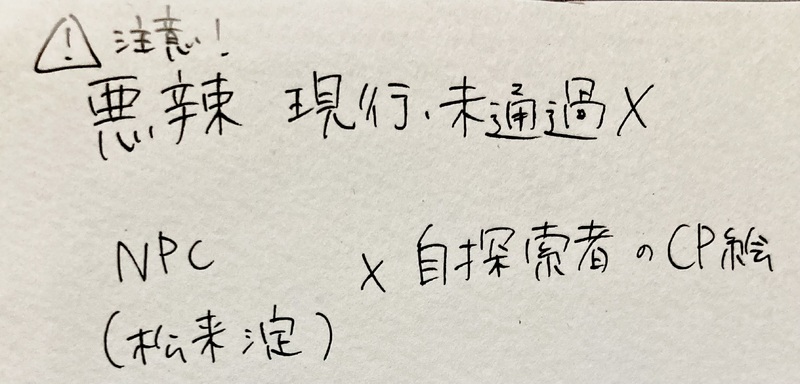 ⚠ 注意!
悪辣 現行、未通過×
NPC × 自探索者のCP絵
(松来淀)